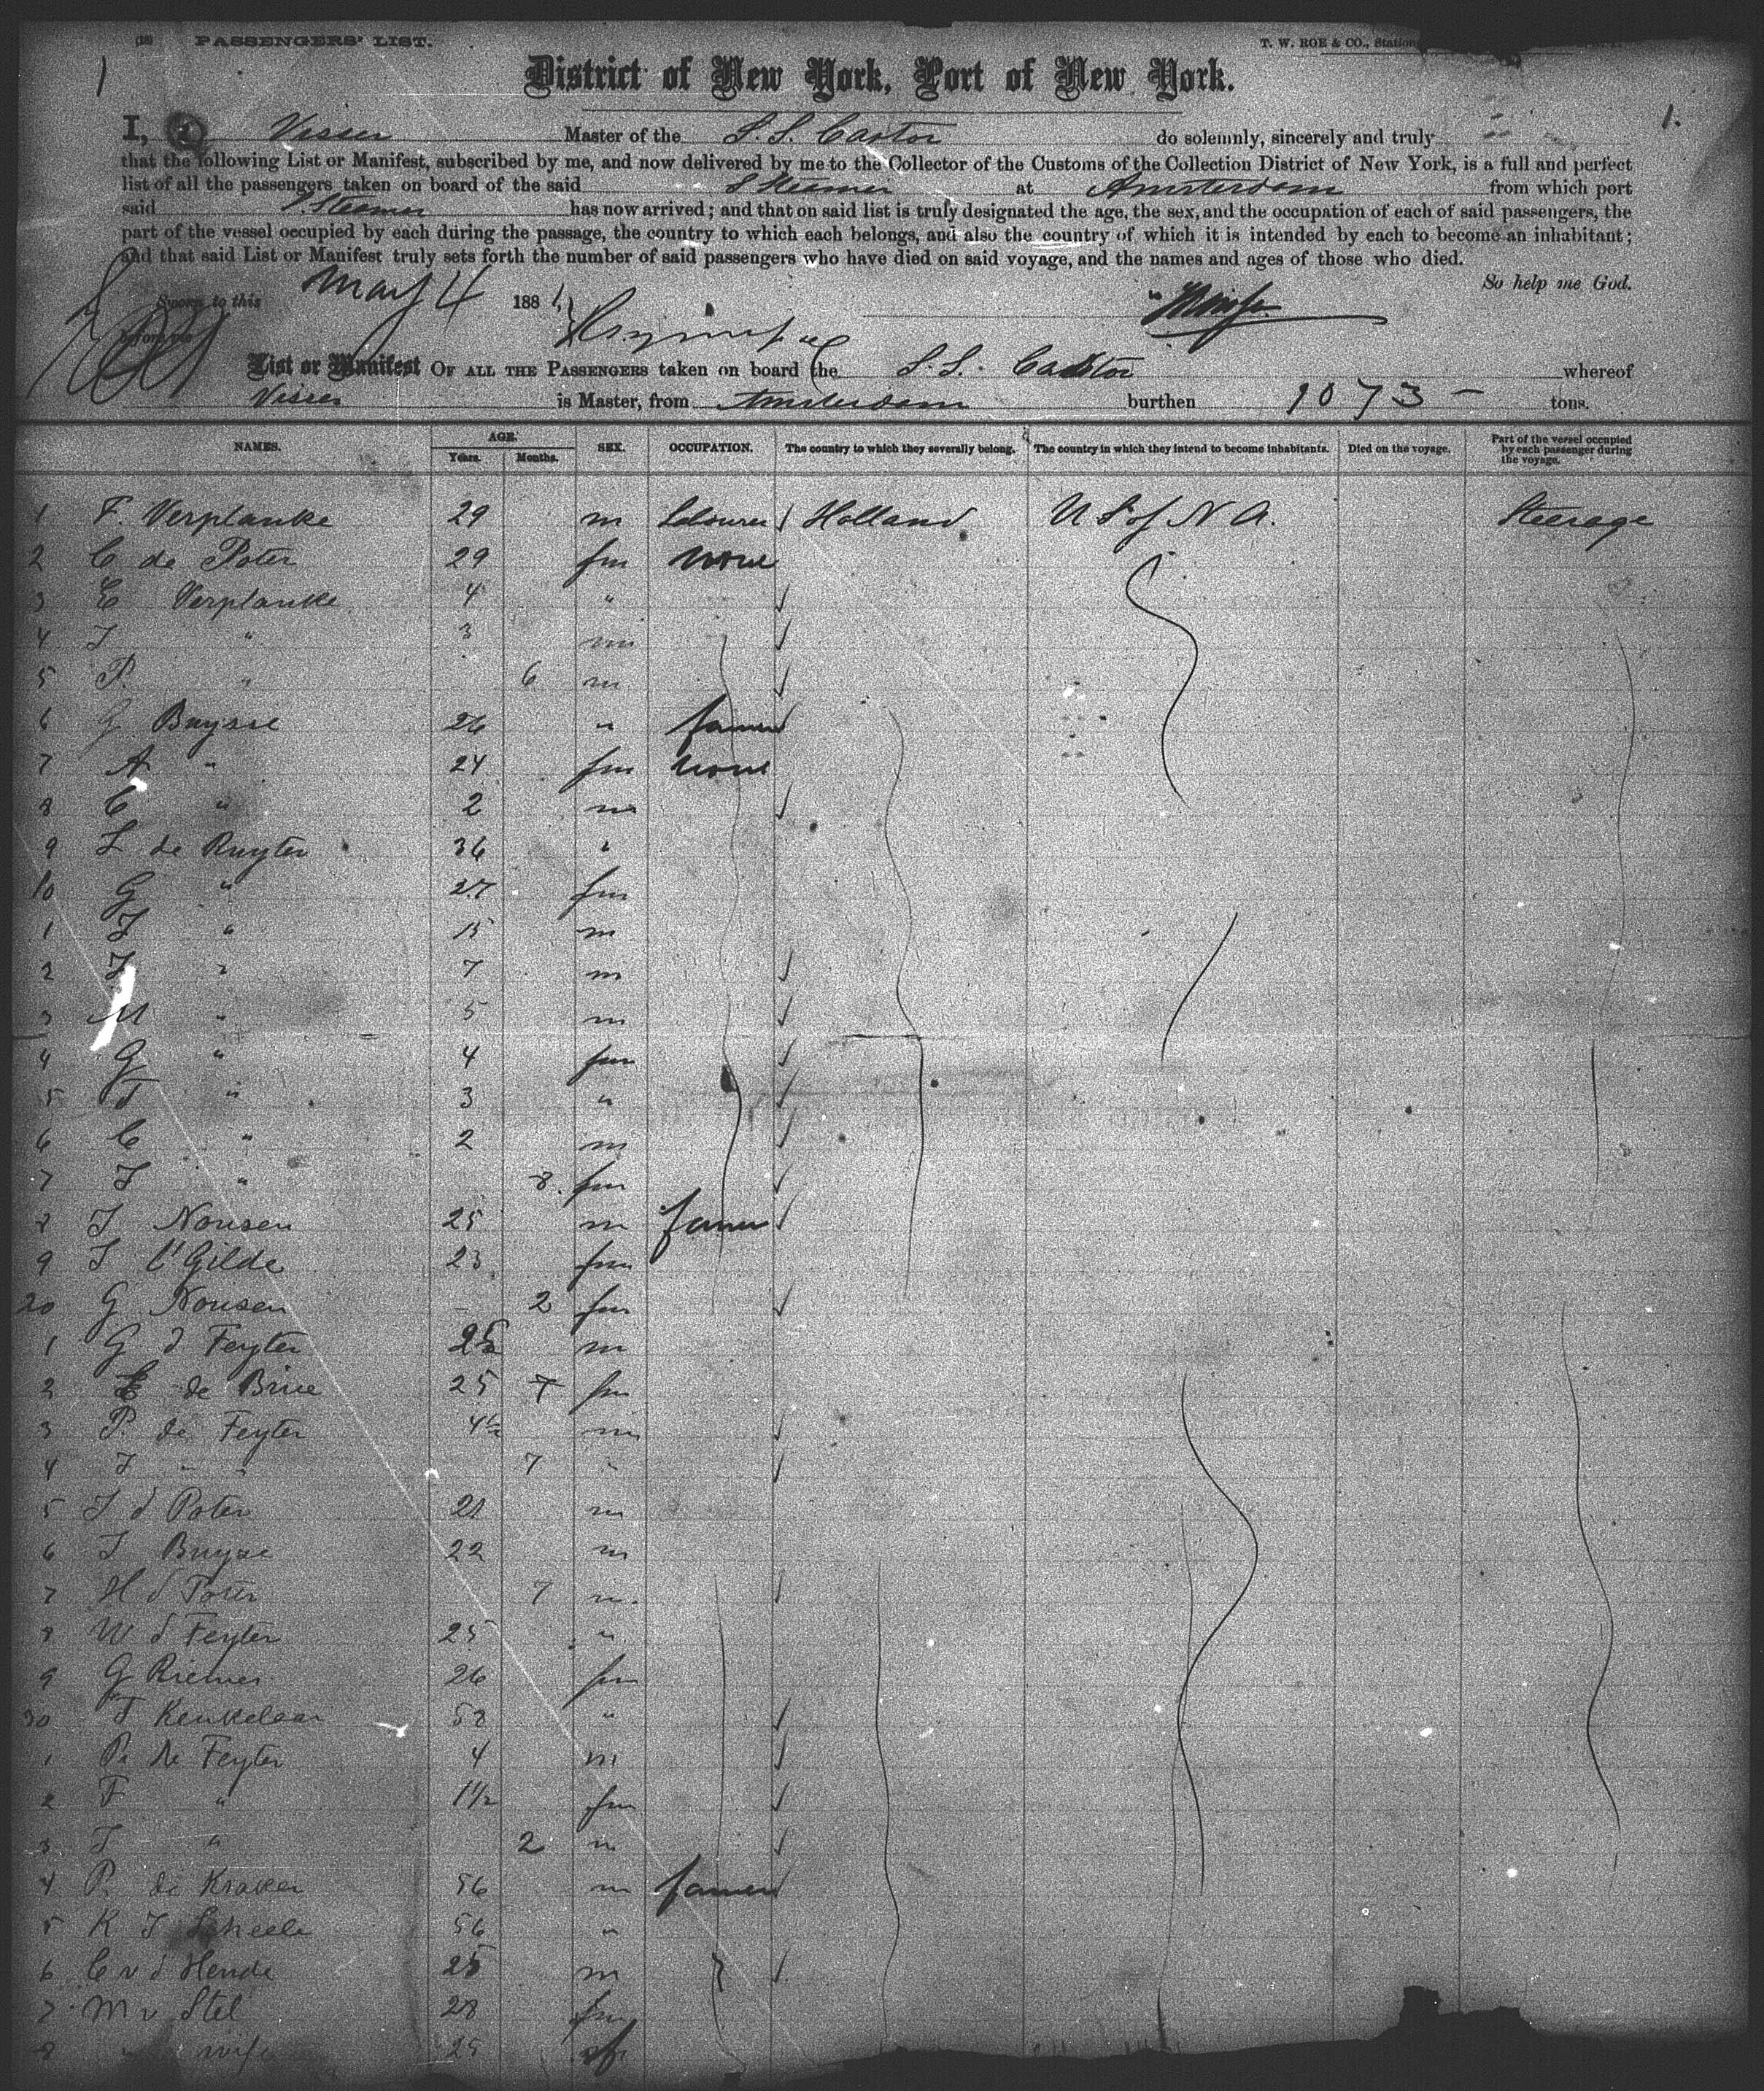 (18) PASSENGERS' LIST. T. W. ROE & CO., Station
1
District of New York, Port of New York.
1.
I, Visser Master of the S.S. Castor do solemnly, sincerely and truly
that the following List or Manifest, subscribed by me, and now delivered by me to the Collector of the Customs of the Collection District of New York, is a full and perfect
list of all the passengers taken on board of the said Steamer at Amsterdam from which port
said Steamer has now arrived; and that on said list is truly designated the age, the sex, and the occupation of each of said passengers, the
part of the vessel occupied by each during the passage, the country to which each belongs, and also the country of which it is intended by each to become an inhabitant;
and that said List or Manifest truly sets forth the number of said passengers who have died on said voyage, and the names and ages of those who died.
So help me God.
Sworn to this May 4 188
before me
List or Manifest OF ALL THE PASSENGERS taken on board the S.S. Castor whereof
Visser is Master, from Amsterdam burthen 1073 — tons.
NAMES. AGE. Years. Months. SEX. OCCUPATION. The country to which they severally belong. The country in which they intend to become inhabitants. Died on the voyage. Part of the vessel occupied by each passenger during the voyage.
1 F. Verplanke 29 m Labourer Holland U S of N A. Steerage
2 C de Poter 29 fm None
3 E Verplanke 4 "
4 J " 3 m
5 P. " 6 m
6 G Buysse 26 " farmer
7 A " 24 fm None
8 C " 2 m
9 L de Ruyter 36 "
10 G " 27 fm
1 J " 15 m
2 J " 7 m
3 M " 5 m
4 G " 4 fm
5 J " 3 "
6 C " 2 m
7 J " 8. fm
8 J Nousen 25 m farmer
9 J l'Gilde 23 fm
20 G Nousen - 2 fm
1 G d Feyter 25 m
2 E de Brue 25 7 fm
3 P. de Feyter 4½ m
4 J " " 7 "
5 J d Poter 21 m
6 J Buyse 22 m
7 H d Poter 7 m.
8 W d Feyter 25 "
9 G Riemer 26 fm
30 J Keukelaar 58 "
1 P. de Feyter 4 m
2 F " 1½ fm
3 J " 2 m
4 P. de Kraker 56 m farmer
5 K J Scheele 56 "
6 C v d Hende 25 m
7 M v Stel 28 fm
8 " wife 25 f